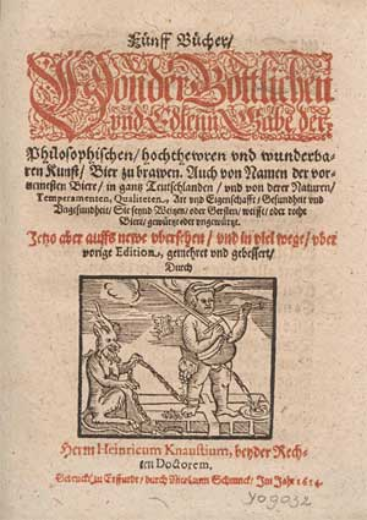 Fünff Bücher/
Von der Göttlichen
vnd Edlenn Gabe der
Philosophischen/ hochthewren vnd wunderba-
ren Kunst/ Bier zu brawen. Auch von Namen der vor-
nemesten Biere/ in gantz Teutschlanden/ vnd von derer Naturen/
Temperamenten, Qualiteten, Art vnd Eigenschafft/ Gesundheit vnd
Vngesundheit/ Sie seynd Weitzen/ oder Gersten/ weisse/ oder rothe
Biere/ gewürtzt oder vngewürtzt.
Jetzo aber auffs newe vbersehen/ vnd in viel wege/ vber
vorige Edition, gemehret vnd gebessert/
Durch
Herrn Heinricum Knaustium, beyder Rech-
ten Doctorem.
Gedruckt zu Erffurdt/ durch Nicolaum Schmuck/ Im Jahr 1614.